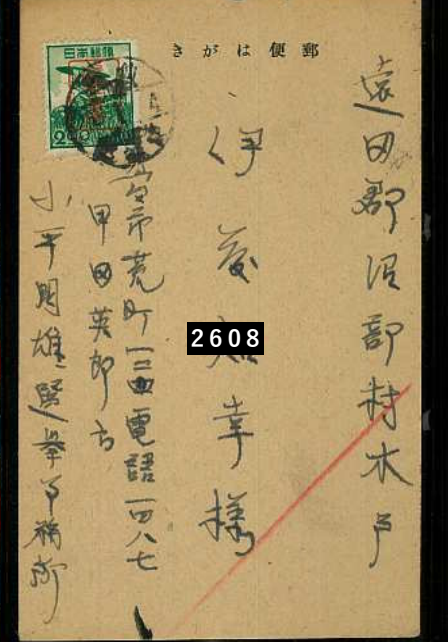 郵便はがき
日本郵便
遠田郡沼部村木戸
伊 幸様
2608
市荒町 電話一四八七
甲田英郎方
小平 雄選挙事務所